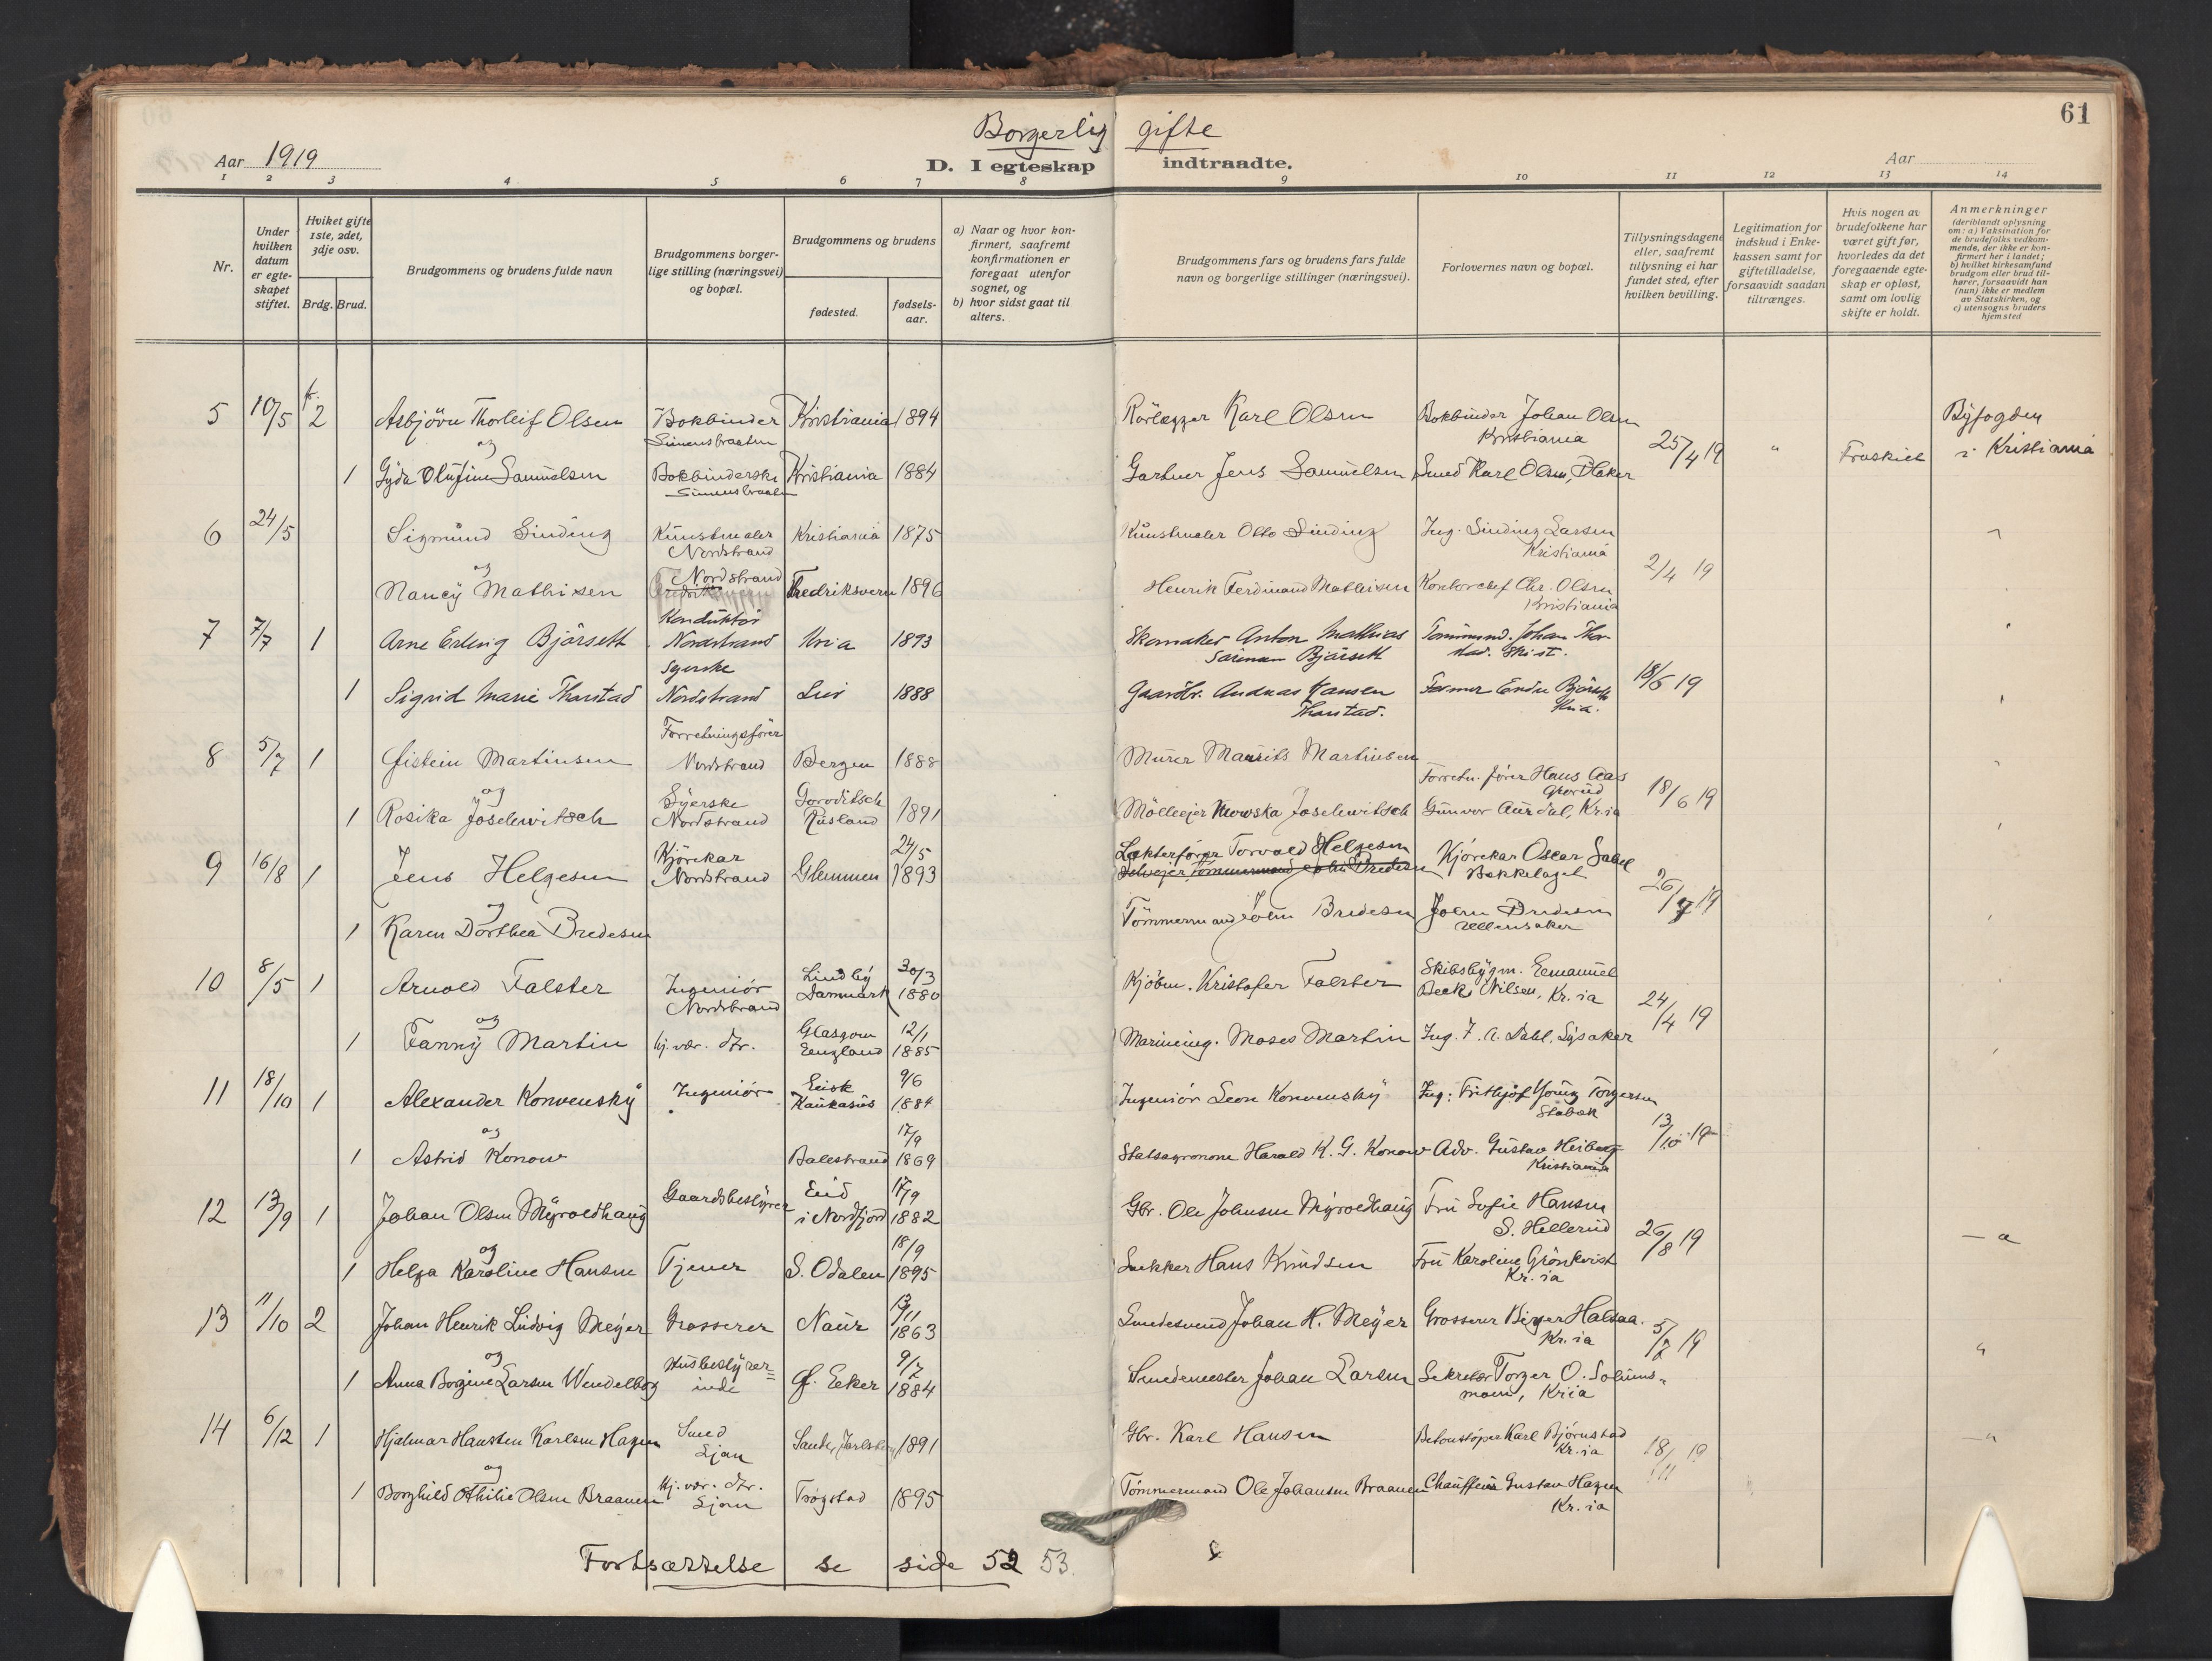 61
Borgerlig gifte
Aar 1919
D. I egteskap indtraadte.
Aar
1 2 3 4 5 6 7 8 9 10 11 12 13 14
Nr.
Under hvilken datum er egteskapet stiftet.
Hviket gifte 1ste, 2det, 3dje osv.
Brdg. Brud.
Brudgommens og brudens fulde navn
Brudgommens borgerlige stilling (næringsvei) og bopæl.
Brudgommens og brudens
fødested.
fødselsaar.
a) Naar og hvor konfirmert, saafremt konfirmationen er foregaat utenfor sognet, og
b) hvor sidst gaat til alters.
Brudgommens fars og brudens fars fulde navn og borgerlige stillinger (næringsvei).
Forlovernes navn og bopæl.
Tillysningsdagene eller, saafremt tillysning ei har fundet sted, efter hvilken bevilling.
Legitimation for indskud i Enkekassen samt for giftetilladelse, forsaavidt saadan tiltrænges.
Hvis nogen av brudefolkene har været gift før, hvorledes da det foregaaende egteskap er opløst, samt om lovlig skifte er holdt.
Anmerkninger
(deriblandt oplysning om: a) Vaksination for de brudefolks vedkommende, der ikke er konfirmert her i landet; b) hvilket kirkesamfund brudgom eller brud tilhører, forsaavidt han (hun) ikke er medlem av Statskirken, og c) utensogns bruders hjemsted
5 10/5 2 Asbjörn Thorleif Olsen Bokbinder Simensbraaten Kristiania 1894 Rörlægger Karl Olsen Bokbinder Johan Olsen Kristiania 25/4 19 " Fraskilt Byfogden i Kristiania
og
1 Gyda Olufine Samuelsen Bokbinderske Simensbraaten Kristiania 1884 Gartner Jens Samuelsen Smed Karl Olsen,
6 24/5 Sigmund Sinding Kunstmaler Nordstrand Kristiania 1875 Kunstmaler Otto Sinding Ing. Sinding Larsen Kristiania 2/4 19
og
Nancy Mathisen Nordstrand Fredriksvern 1896 Henrik Ferdinand Mathisen Kontorchef Chr. Olsen Kristiania
7 7/7 1 Arne Erling Bjørsett Konduktör Nordstrand Kria 1893 Skomaker Anton Mathias Bjørsett Tömmermd. Johan Thorstad. 18/6 19
1 Sigrid Marie Thorstad Syerske Nordstrand 1888 Gaardbr. Andreas Hansen Thorstad. Bjørsett Kria.
8 5/7 1 Øistein Martinsen Forretningsfører Nordstrand Bergen 1888 Murer Maurits Martinsen Forretn. fører Hans Aas Grorud 18/6 19
og
1 Rosika Joselewitsch Syerske Nordstrand Goroditsch Rusland 1891 Mölleejer Mowska Joselewitsch Gunvor Aurdal, Kr.ia
9 16/8 1 Jens Helgesen Kjørekar Nordstrand Glemmen 24/5 1893 Lekterfører Torvald Helgesen Kjørekar Oscar Bekkelaget 26/7 19
og
1 Karen Dorthea Bredesen Tömmermand John Bredesen John Bredesen Ullensaker
10 8/5 1 Arnold Falster Ingeniör Nordstrand Lindby Danmark 30/3 1880 Kjöbm. Kristofer Falster Skibsbygm. Eemanuel Beck Nilsen, Kr.ia 24/4 19
og
1 Fanny Martin hj.vær. dtr. Glasgow Eengland 12/1 1885 Marineing. Moses Martin Ing. F. A. Dahl, Lysaker
11 18/10 1 Alexander Konvensky Ingeniör Eeisk Kaukasus 9/6 1884 Ingeniör Leon Konvensky Ing. Frithjof Young Torgersen Stabæk 13/10 19
og
1 Astrid Konow Balestrand 17/9 1869 Statsagronom Harald K. G. Konow Adv. Gustav Heiberg Kristiania
12 13/9 1 Johan Olsen Myroldhaug Gaardsbestyrer Eid i Nordfjord 17/9 1882 Gbr. Ole Johnsen Myroldhaug Fru Sofie Hansen S. Hellerud 26/8 19 — a
og
1 Helga Karoline Hansen Tjener S. Odalen 18/9 1895 Snekker Hans Knudsen Fru Karoline Grönkvist Kr.ia
13 11/10 2 Johan Henrik Ludvig Meyer Grosserer Naur 1863 Smedesvend Johan H. Meyer Grosserer Birger Halsaa. Kr.ia 5/7 19 "
og
1 Anna Borgine Larsen Wendelborg Husbestyrerinde Ø. Eeker 9/7 1884 Smedemester Johan Larsen Sekretær Torger O. Solumsmoen, Kria
14 6/12 1 Hjalmar Hansten Karlsen Hagen Smed Ljan Sande, Jarlsberg 1891 Gbr. Karl Hansen Betonstøper Karl Bjørnstad Kr.ia 18/11 19 — "
og
1 Borghild Othilie Olsen Braanen Hj.vær. dtr. Ljan Trøgstad 1895 Tömmermand Ole Johansen Braanen Chauffeur Gustav Hagen Kr.ia
Fortsættelse se side 52 53.